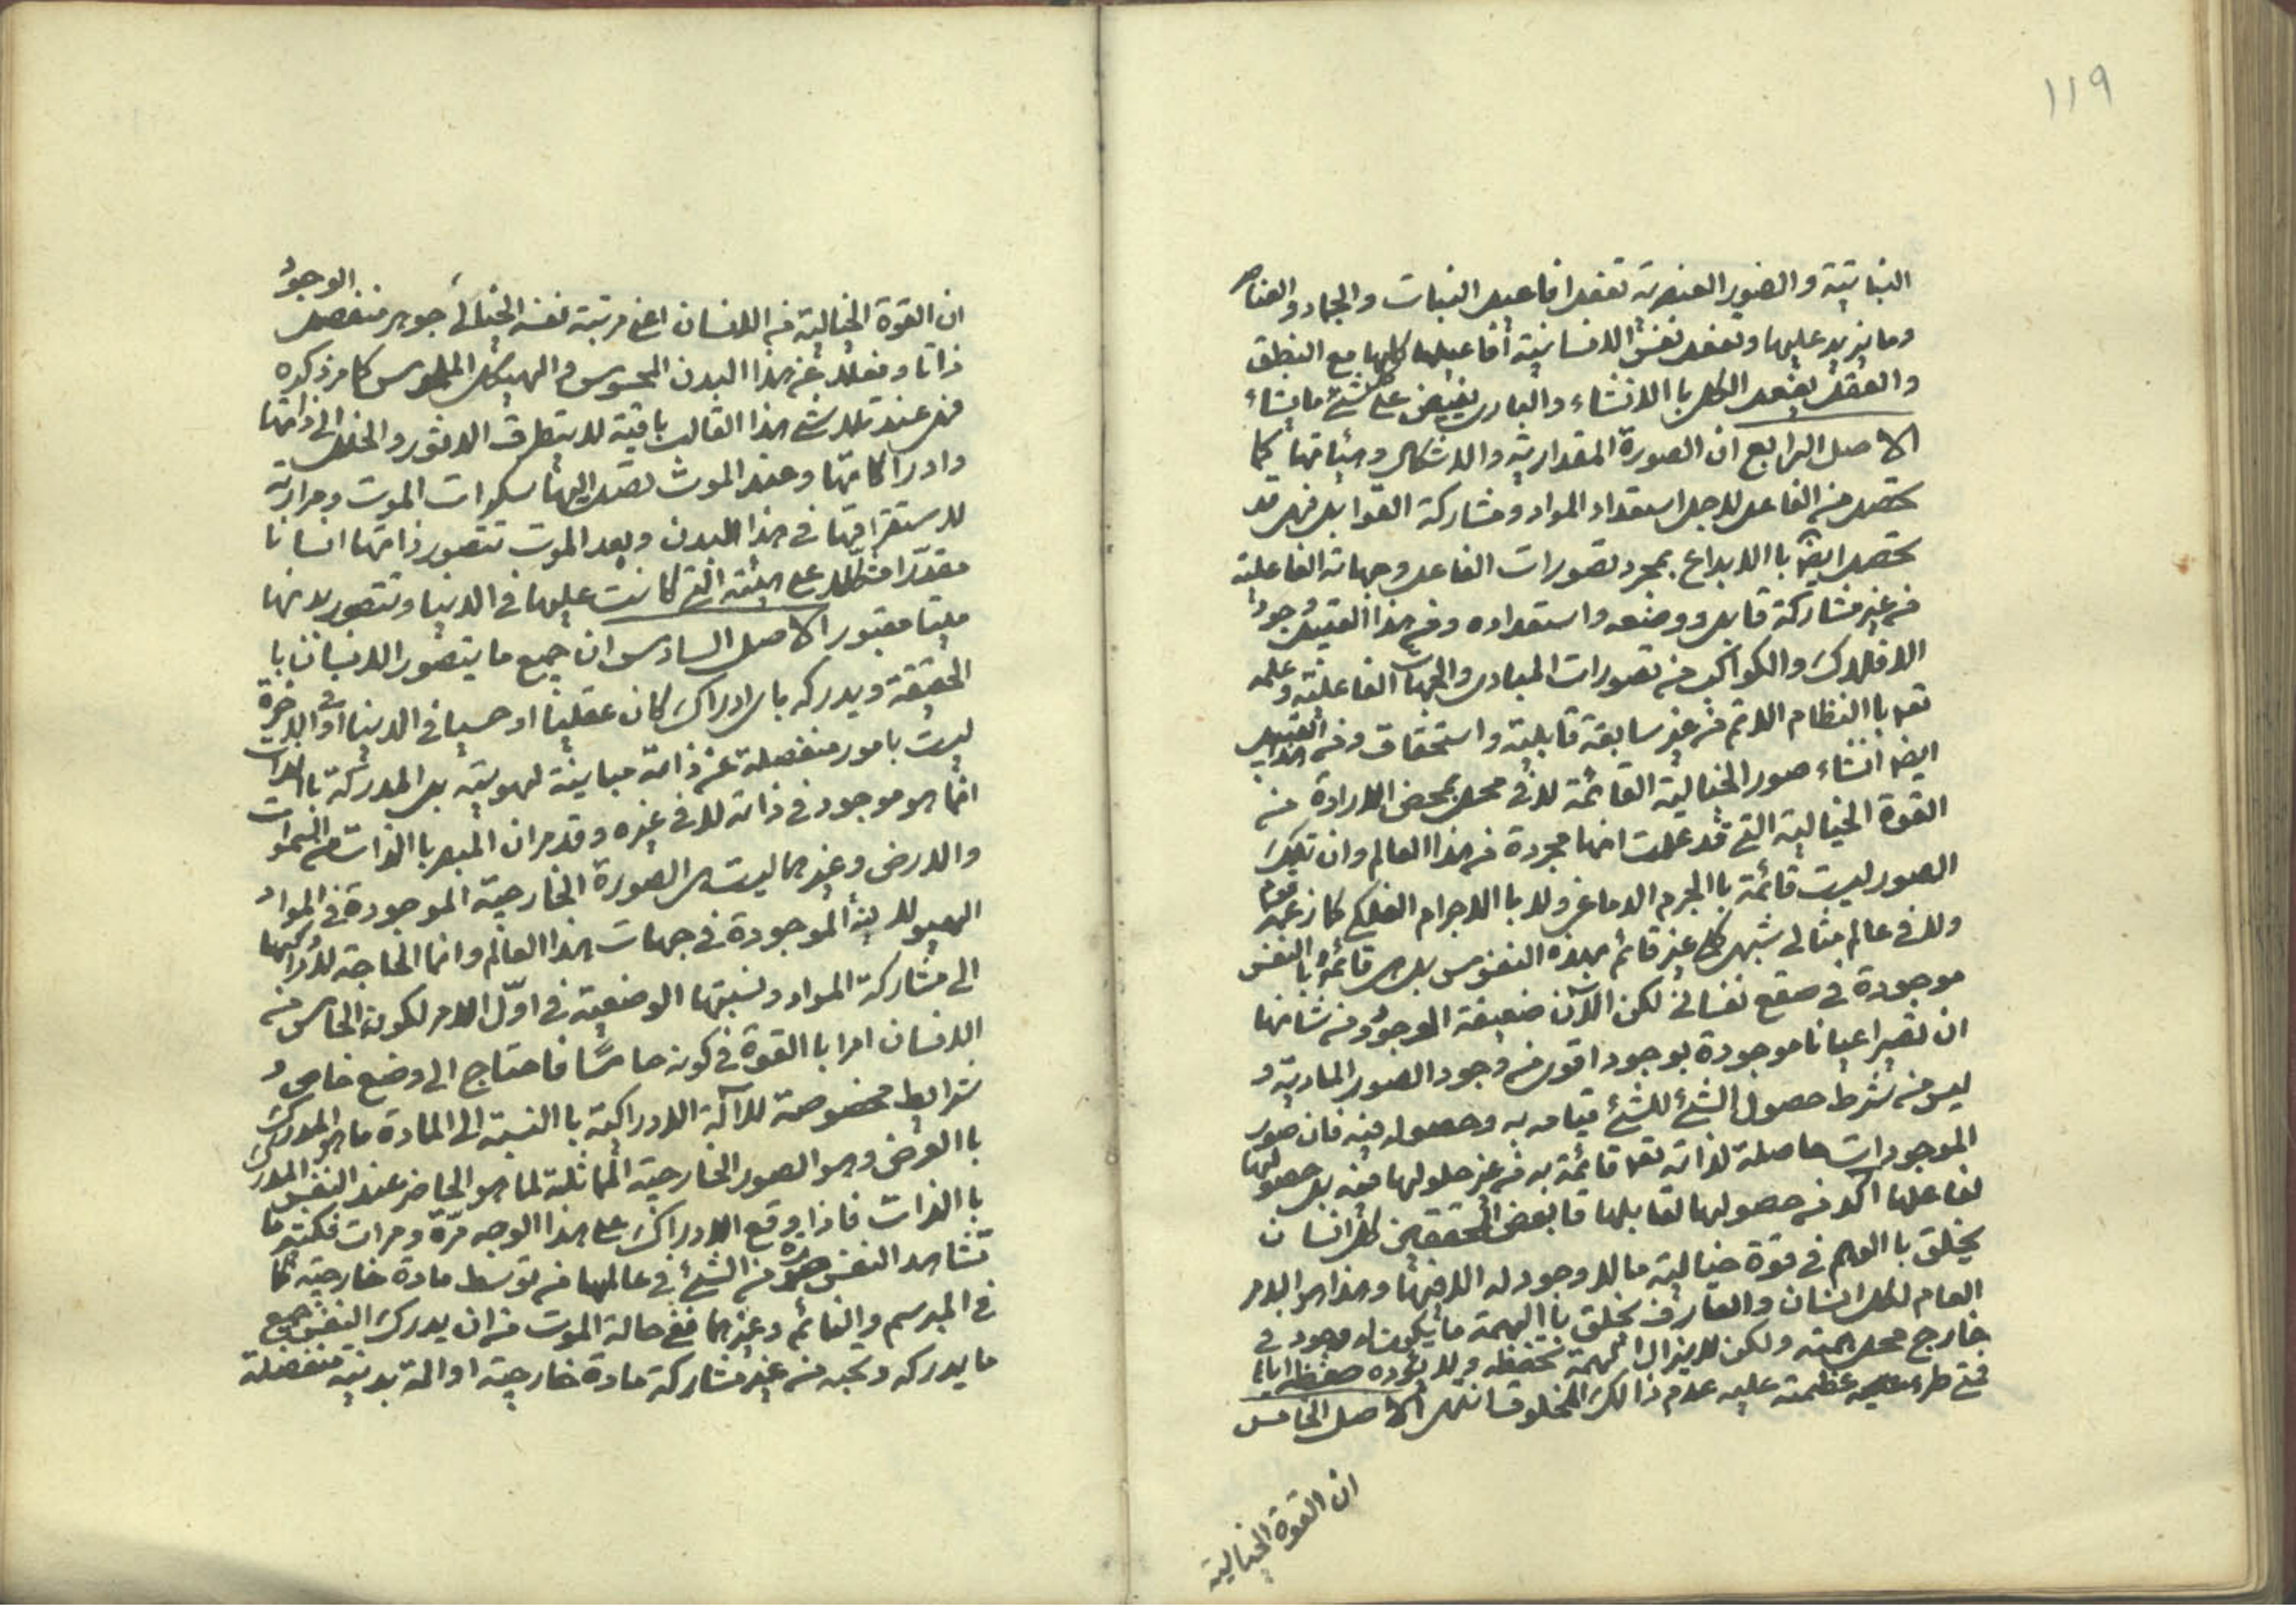 ١١٩
النباتية والصور العنصرية تفعل افاعيل النبات والجماد والعناصر
وما يزيد عليها وتفعل نفس الانسانية افاعيلها كلها مع النطق
والعقل يفعل الكل باالانشاء والبارى يفيض على كل شئ ما يشاء
الاصل الرابع ان الصورة المقدارية والاشكال وهيئاتها كما
تحصل من الفاعل لاجل استعداد المواد ومشاركة القوابل فهى قد
تحصل ايضا باالابداع بمجرد تصورات الفاعل وجهاته الفاعلية
من غير مشاركة قابل ووضعه واستعداده ومن هذا القبيل وجود
الافلاك والكواكب من تصورات المبادى والجهات الفاعلية وعلمه
تعه باالنظام الاتم من غير سابقة قابلية واستحقاق ومن هذا القبيل
ايضا انشاء صور الخيالية القائمة لا فى محل بمحض الارادة من
القوة الخيالية التى قد علمت انها مجردة من هذا العالم وان تلك
الصور ليست قائمة باالجرم الدماغى ولا باالاجرام الفلكى كما زعمه قوم
ولا فى عالم مثالى شبهى كلى غير قائم بهذه النفوس بل هى قائمة باالنفس
موجودة فى صقع نفسانى لكن الآن ضعيفة الوجود ومن شانها
ان تصير اعيانا موجودة بوجود اقوى من وجود الصور المادية و
ليس من شرط حصول الشئ للشئ قيامه به وحصوله فيه فان صور
الموجودات حاصلة لذاته تعه قائمة به من غير حلولها فيه بل حصولها
لفاعلها آكد من حصولها لقابلها قا بعض المحققين كل انسان
يخلق باالوهم فى قوة خيالية ما لا وجود له الا فيها وهذا هو الامر
العام لكل انسان والعارف يخلق باالهمة ما يكون له وجود فى
خارج محل الهمة ولكن لا يزال الهمة تحفظه ولا يؤده حفظها اياه
فمتى طرء عليه عدم ذالك المخلوق انتهى الاصل الخامس
ان القوة الخيالية
ان القوة الخيالية من الانسان اعنى مرتبة نفسه الخيالى جوهر منفصل الوجود
ذاتا وفعلا عن هذا البدن المحسوس والهيكل الملموس كما مر ذكره
فهى عند تلاشى هذا القالب باقية لا يتطرق الدثور والخلل الى ذاتها
وادراكاتها وعند الموت تصل اليها سكرات الموت ومرارته
لاستغراقها فى هذا البدن وبعد الموت تتصور ذاتها انسانا
مقدرا متشكلا على هيئته التى كانت عليها فى الدنيا وتتصور بدنها
ميتا مقبورا الاصل السادس ان جميع ما يتصور الانسان با
الحقيقة ويدركه باى ادراك كان عقليا او حسيا فى الدنيا او فى الاخرة
ليست بامور منفصلة عن ذاته مباينة لهويته بل المدركة باالذات
انما هو موجود فى ذاته لا فى غيره وقد مر ان المبصر باالذات من السموات
والارض وغيرهما ليست هى الصورة الخارجية الموجودة فى المواد
الهيولانية الموجودة فى جهات هذا العالم وانما الحاجة لادراكها
الى مشاركة المواد ونسبتها الوضعية فى اول الامر لكون الحاس من
الانسان امرا باالقوة فى كونه حاسا فاحتاج الى وضع خاص و
شرايط مخصوصة للآلة الادراكية باالنسبة الى المادة ما هو المدرك
باالعرض وهو الصور الخارجية المماثلة لما هو الحاضر عند النفس المدرك
باالذات فاذا وقع الادراك على هذا الوجه مرة ومرات فكثيرا ما
تشاهد النفس صورة من الشئ فى عالمها من توسط مادة خارجية كما
فى المبرسم والنائم وغيرهما ففى حالة الموت من ان يدرك النفس جميع
ما يدركه وتحبه من غير مشاركة مادة خارجية او الة بدنية منفصلة